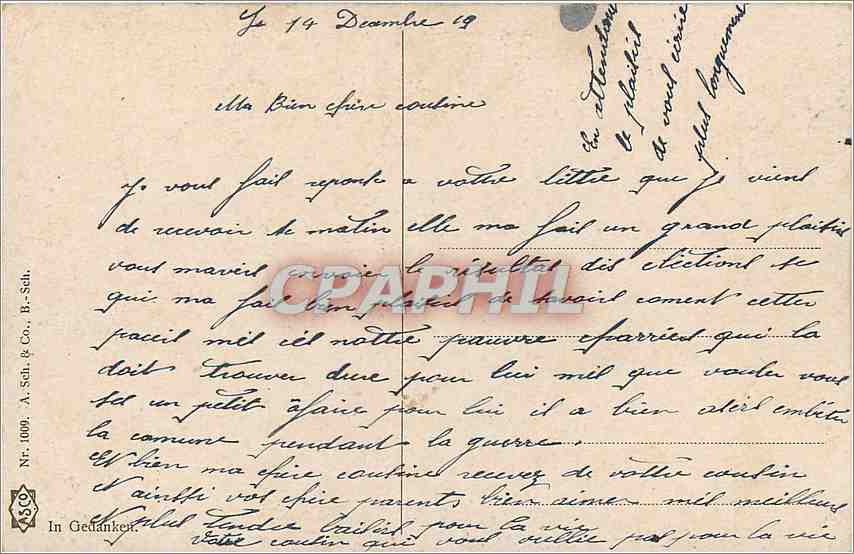 Le 14 Decembre 19
En attendant
le plaisir
de vous écrire
plus longuement
Ma Bien chère cousine
Je vous fait reponse a vottre lettre que je viens
de recevoir se matin elle ma fait un grand plaisir
vous maveis envoier le résultat des éléctions se
qui ma fait bien plaisir de savoir coment cetter
paceil mes notttre pauvre qui la
doit trouver dure pour lui mes que vouler vous
set un petit afaire pour lui il a bien asers embéter
la comune pendant la guerre.
Et bien ma chère cousine recever de vottre cousin
N ainssi vos chère parents bien aimer mes meilleurs
N plus tendre baisers pour la vie
Votre cousin qui vous oublie pas pour la vie
CPAPHIL
Nr. 1009. A. Sch. & Co., B.-Sch.
ASCO
In Gedanken.